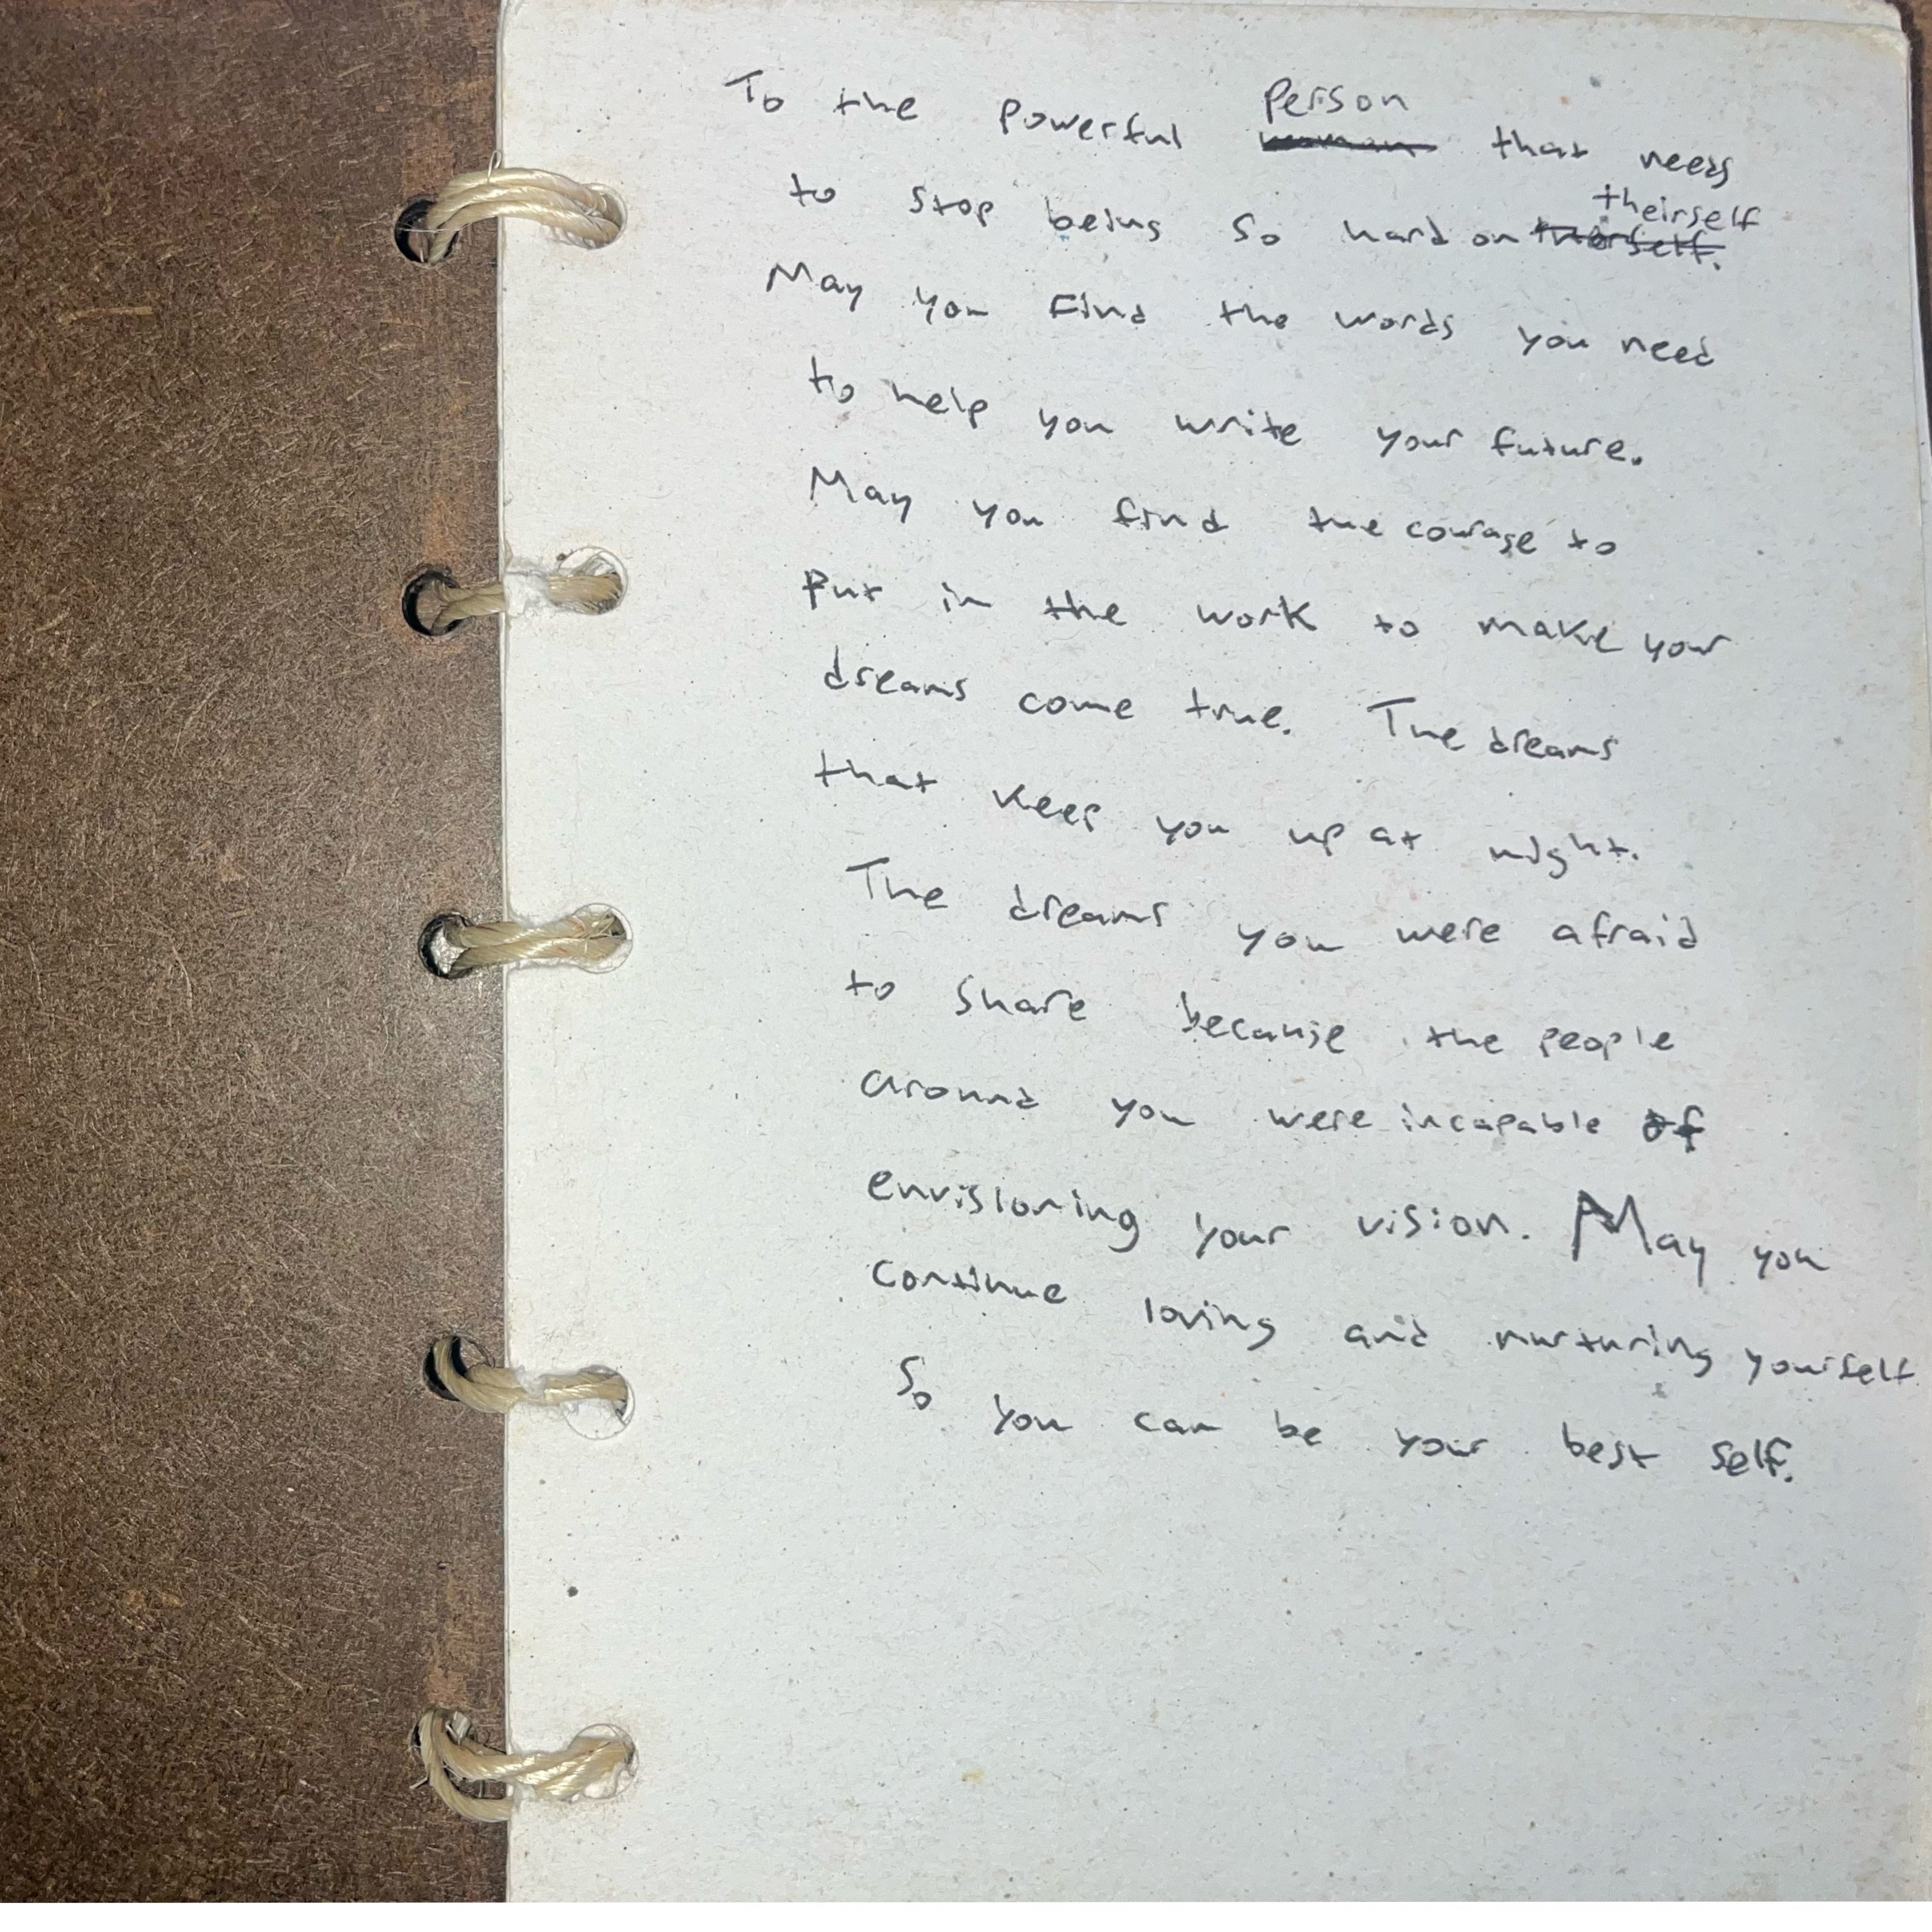 To the powerful person that needs
to stop being so hard on theirself
May you find the words you need
to help you write your future.
May you find the courage to
put in the work to make your
dreams come true. The dreams
that keep you up at night.
The dreams you were afraid
to share because the people
around you were incapable of
envisioning your vision. May you
continue loving and nurturing yourself
So you can be your best self.